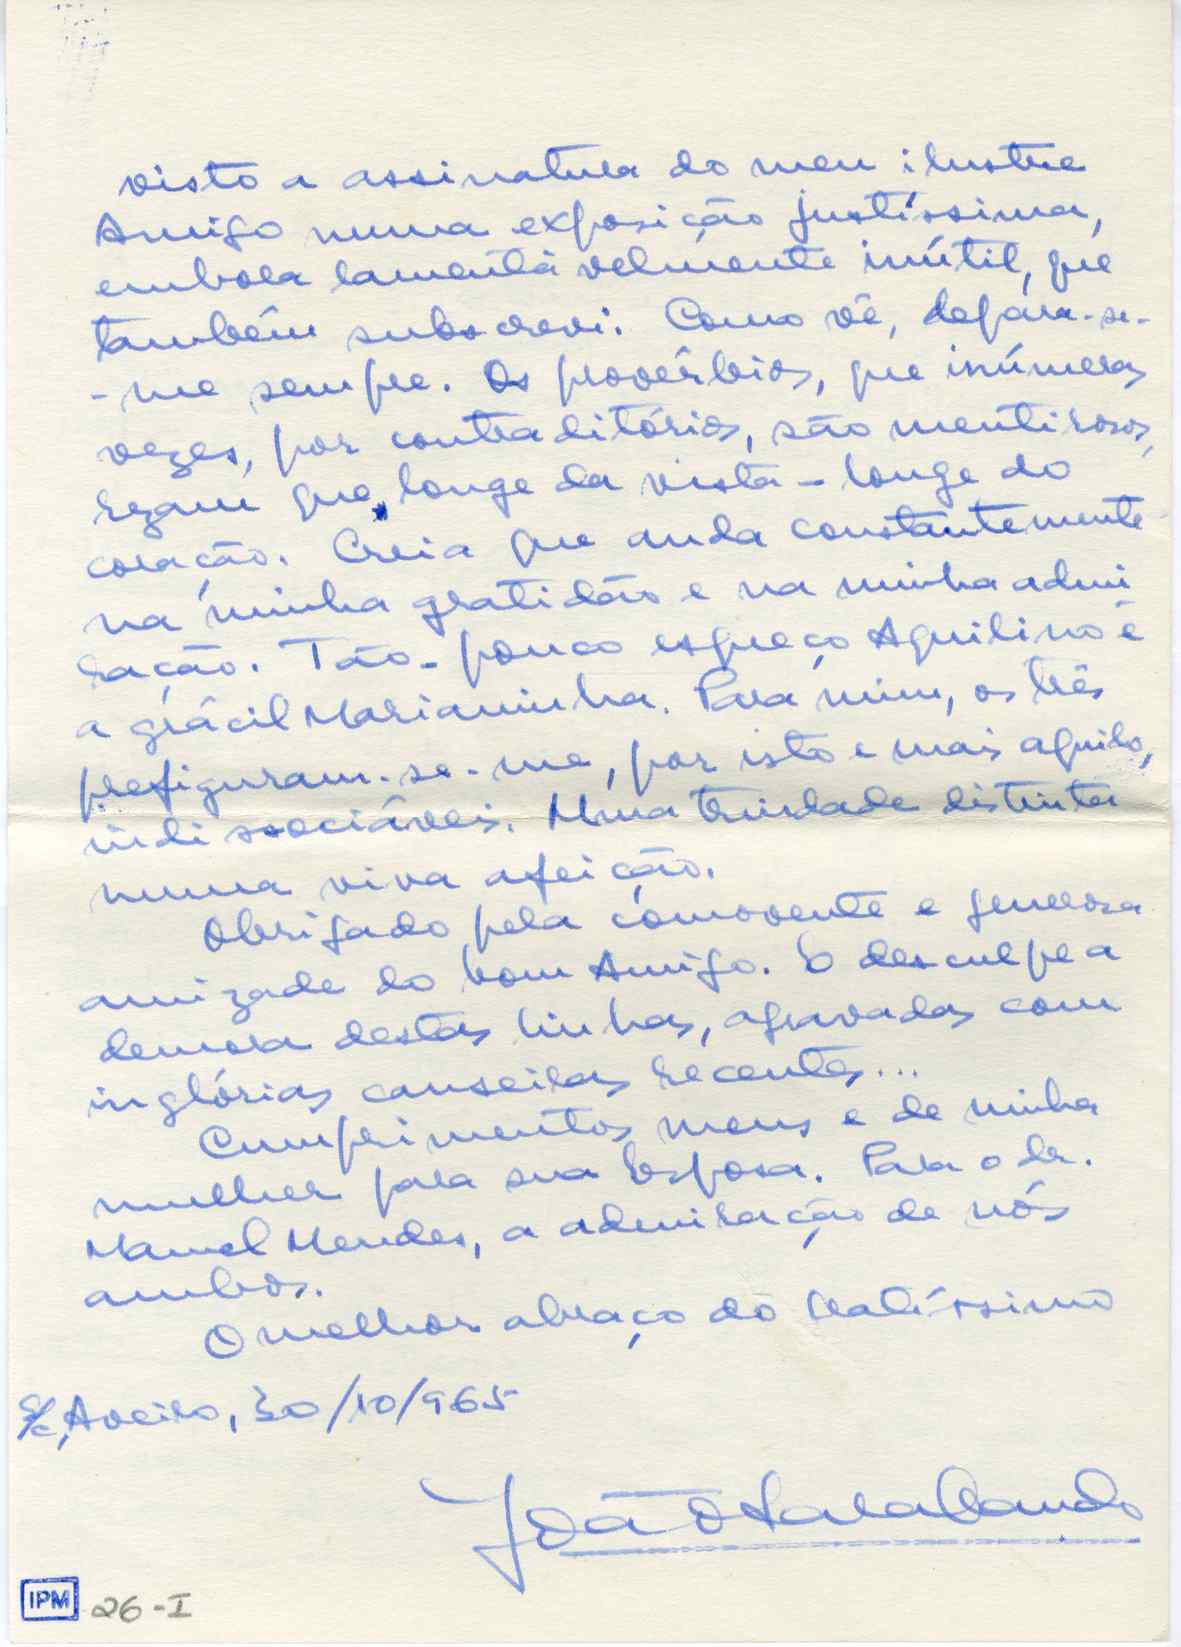 visto a assinatura do meu ilustre
Amigo numa exposição justíssima,
embora lamentàvelmente inútil, que
também subscrevi. Como vê, depara-se-
-me sempre. Os provérbios, que inúmeras
vezes, por contraditórios, são mentirosos,
rezam que longe da vista - longe do
coração. Creia que anda constantemente
na minha gratidão e na minha admi
ração. Tão-pouco esqueço Aquilino e
a grácil Marianinha. Para mim, os três
prefiguram-se-me, por isto e mais aquilo,
indissociáveis. Uma trindade distinta
numa viva afeição.
Obrigado pela comovente e generosa
amizade do bom Amigo. E desculpe a
demora destas linhas, agravadas com
inglórias canseiras recentes...
Cumprimentos meus e de minha
mulher para sua Esposa. Para o dr.
Manuel Mendes, a admiração de nós
ambos.
O melhor abraço do lealíssimo
S/C, Aveiro, 30/10/965
João Sarabando
IPM 26-I